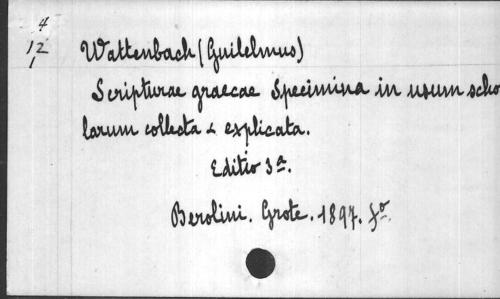 4
12
1
Wattenbach (Guilelmus)
Scripturae graecae Specimina in usum scho
larum collecta & explicata.
Editio 3a.
Berolini. Grote. 1897. fo.